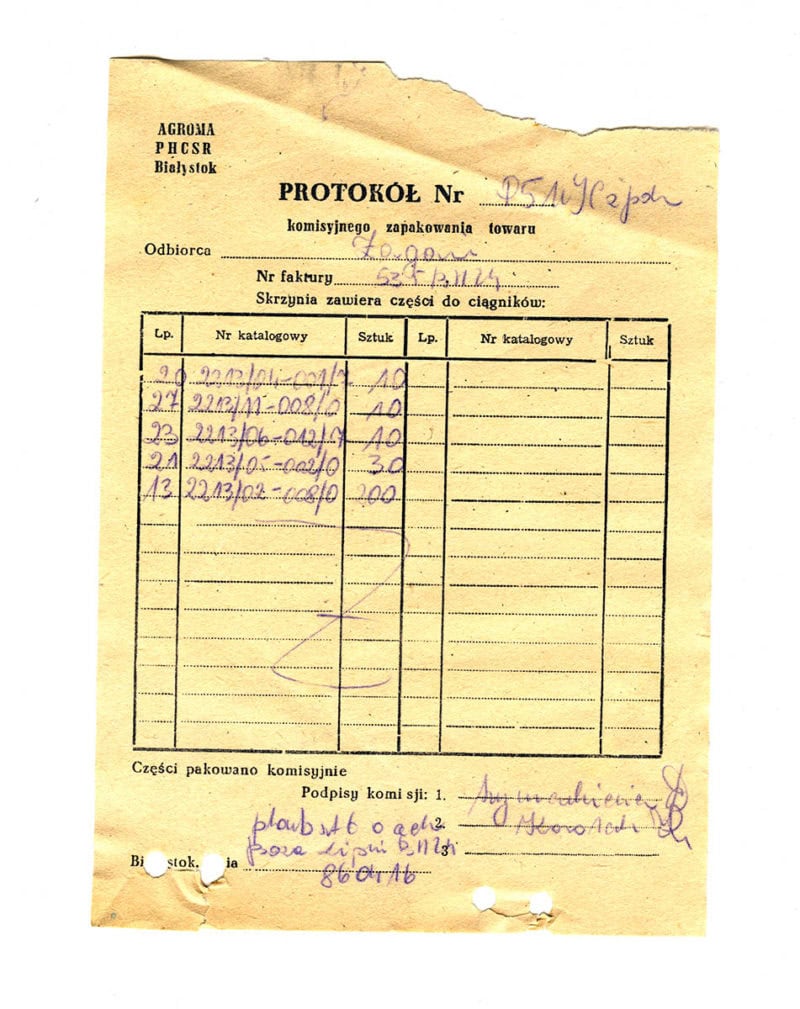 AGROMA
PHCSR
Białystok
PROTOKÓŁ Nr
komisyjnego zapakowania towaru
Odbiorca Żagań
Nr faktury
Skrzynia zawiera części do ciągników:
Lp. Nr katalogowy Sztuk Lp. Nr katalogowy Sztuk
20 2213/04-001/7 10
27 2213/11-008/0 10
23 2213/06-012/0 10
21 2213/05-002/0 30
13 2213/02-008/0 200
Części pakowano komisyjnie
Podpisy komisji: 1.
2.
3
stok. nia
860416